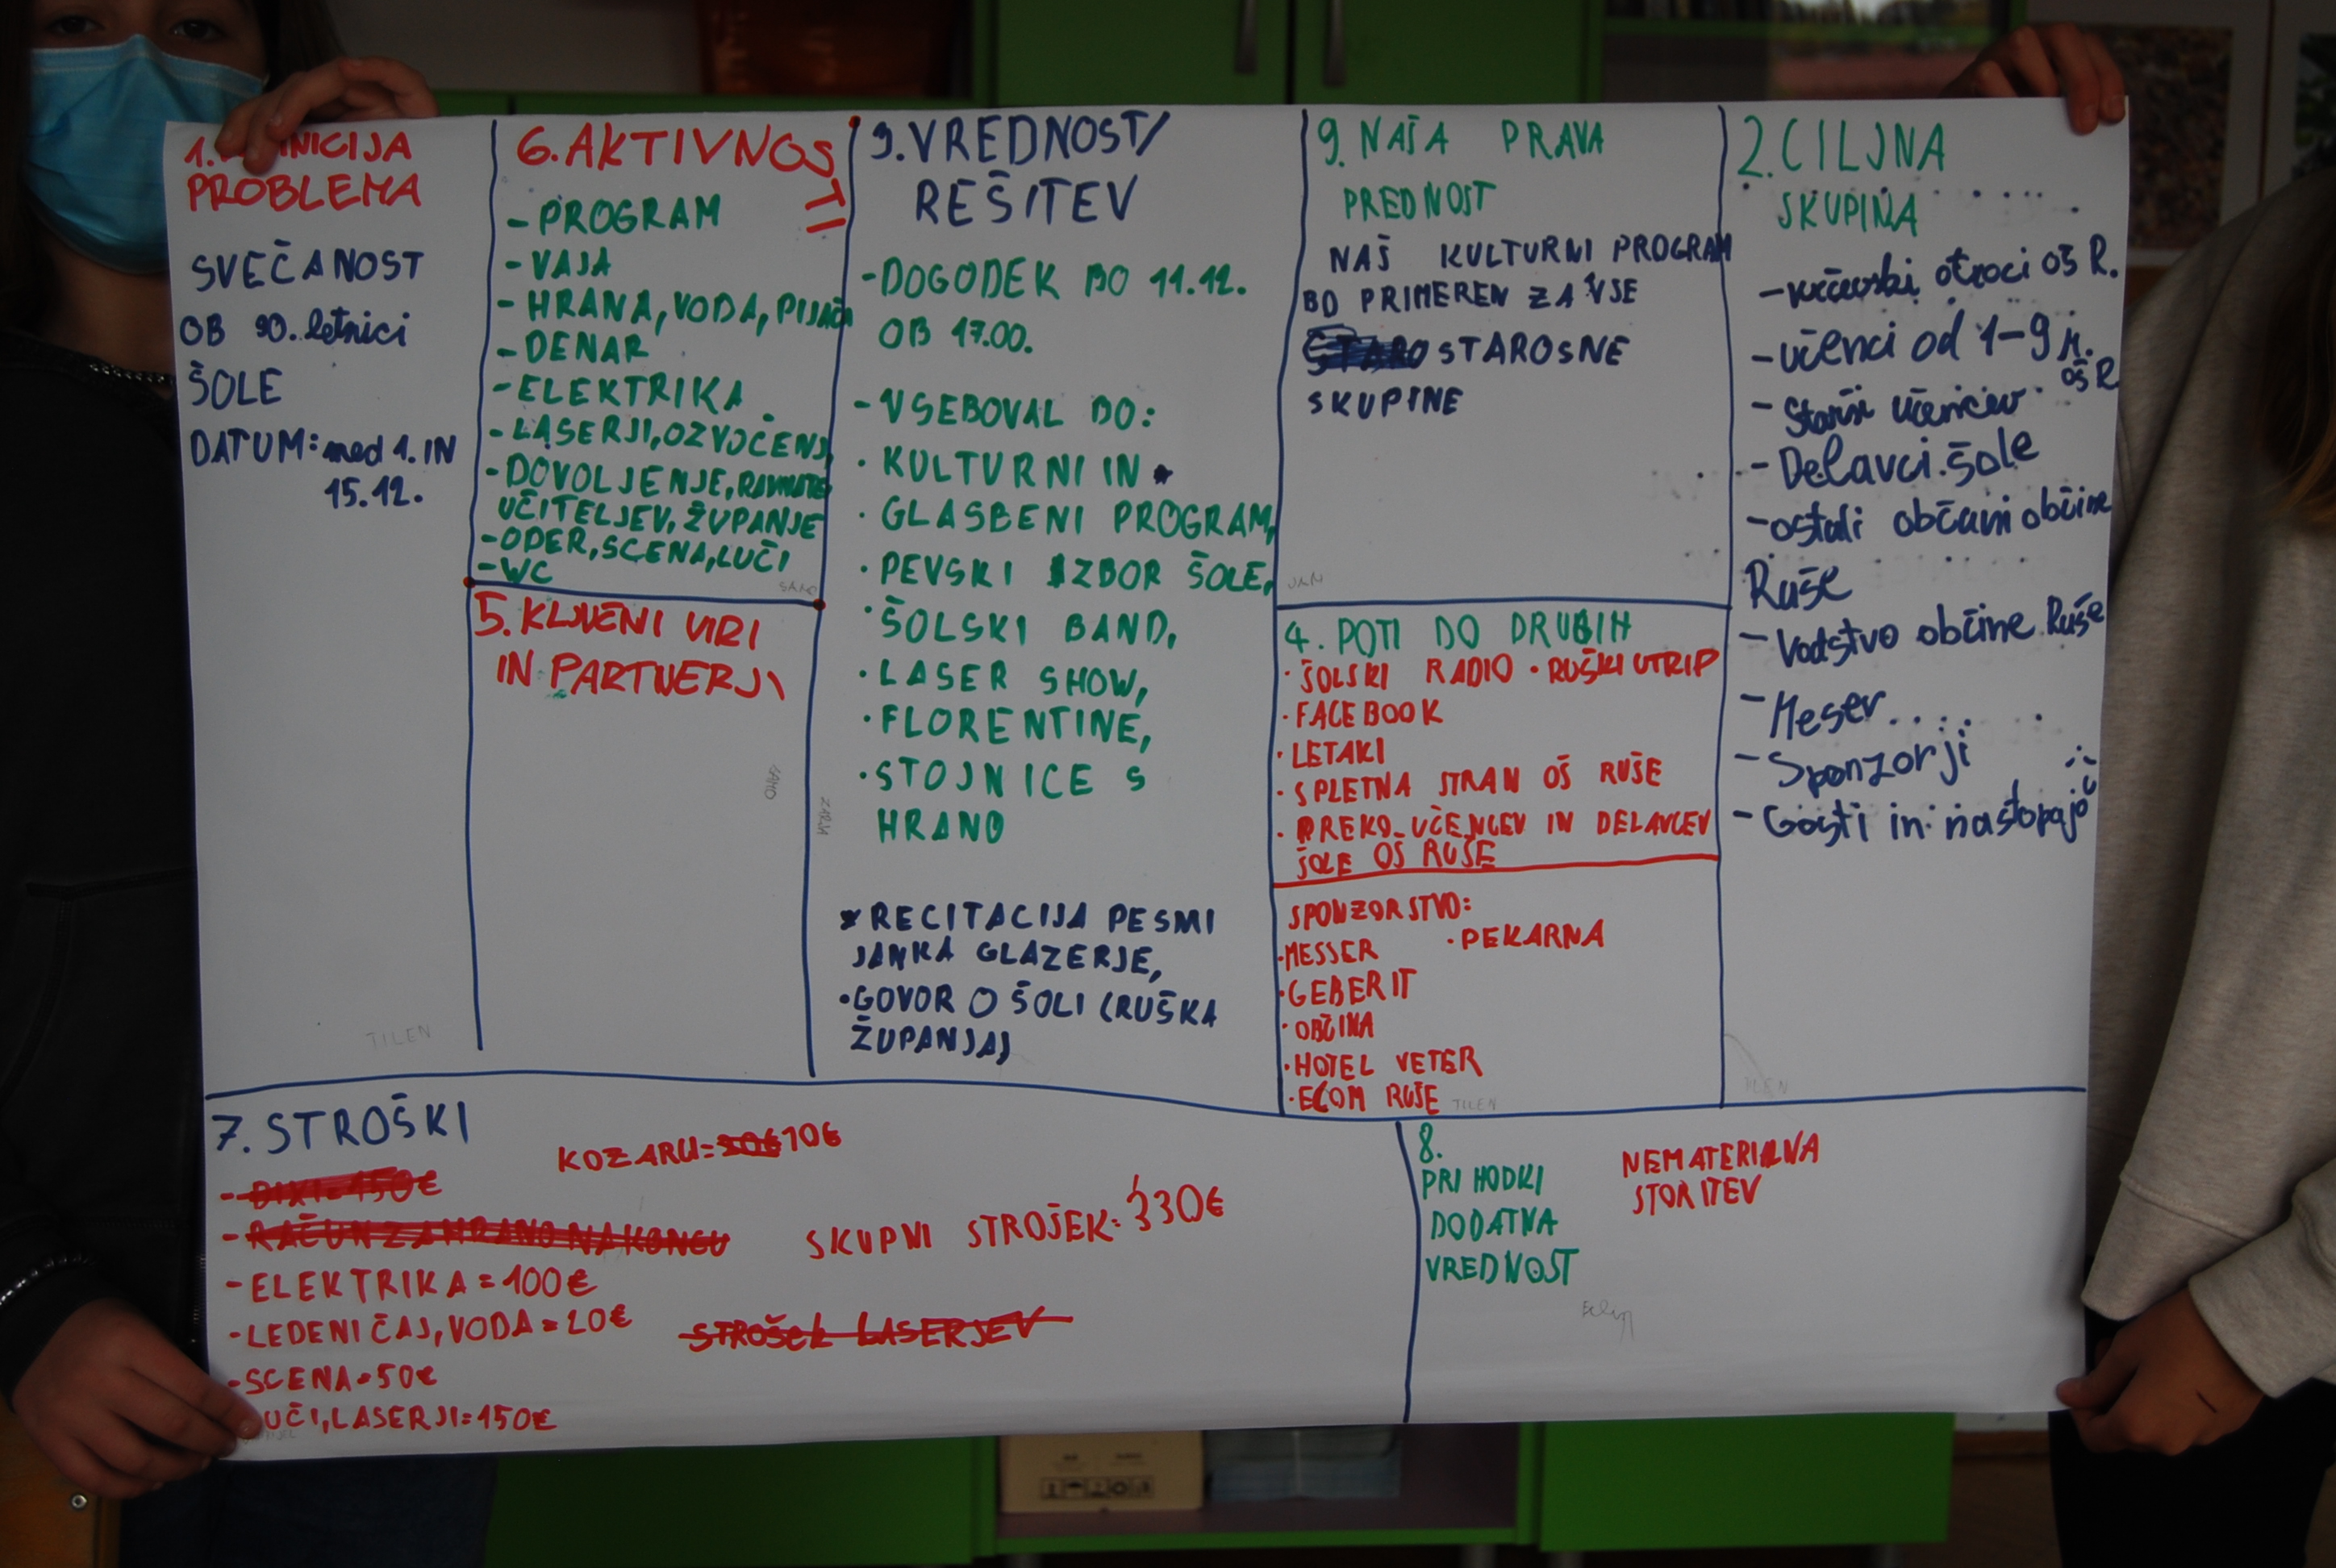 1. DEFINICIJA
PROBLEMA
SVEČANOST
OB 90. letnici
ŠOLE
DATUM: med 1. IN
15.12.
TILEN
6. AKTIVNOSTI
- PROGRAM
- VAJA
- HRANA, VODA, PIJAČA
- DENAR
- ELEKTRIKA
- LASERJI, OZVOČENJ
- DOVOLJENJE, RAVNATE
UČITELJEV, ŽUPANJE
- ODER, SCENA, LUČI
- WC
SAMO
5. KLJUČNI VIRI
IN PARTNERJI
SAMO
3. VREDNOST/
REŠITEV
- DOGODEK BO 11.12.
OB 17.00.
- VSEBOVAL BO:
· KULTURNI IN
· GLASBENI PROGRAM,
· PEVSKI IZBOR ŠOLE,
· ŠOLSKI BAND,
· LASER SHOW,
· FLORENTINE,
· STOJNICE S
HRANO
ZARJA
* RECITACIJA PESMI
JANKA GLAZERJE,
· GOVOR O ŠOLI (RUŠKA
ŽUPANJA)
9. NAŠA PRAVA
PREDNOST
NAŠ KULTURNI PROGRAM
BO PRIMEREN ZA VSE
STARO STAROSNE
SKUPINE
JAN
4. POTI DO DRUGIH
· ŠOLSKI RADIO · RUŠKI UTRIP
· FACEBOOK
· LETAKI
· SPLETNA STRAN OŠ RUŠE
· PREKO UČENCEV IN DELAVCEV
ŠOLE OŠ RUŠE
SPONZORSTVO:
· MESSER · PEKARNA
· GEBERIT
· OBČINA
· HOTEL VETER
· ECOM RUŠE
TILEN
2. CILJNA
SKUPINA
- vrčevski otroci OŠ R.
- učenci od 1-9 r.
OŠ R
- Starši učencev
- Delavci šole
- ostali občani občine
Ruše
- Vodstvo občine Ruše
- Meser
- Sponzorji
- Gosti in nastopajoč
TILEN
7. STROŠKI
KOZARU = 30€ 10€
- DIXI = 150€
- RAČUN ZA HRANO NA KONCU
SKUPNI STROŠEK: 330€
- ELEKTRIKA = 100€
- LEDENI ČAJ, VODA = 20€
STROŠEK LASERJEV
- SCENA = 50€
UČI, LASERJI = 150€
8.
PRIHODKI
DODATNA
VREDNOST
NEMATERIALNA
STORITEV